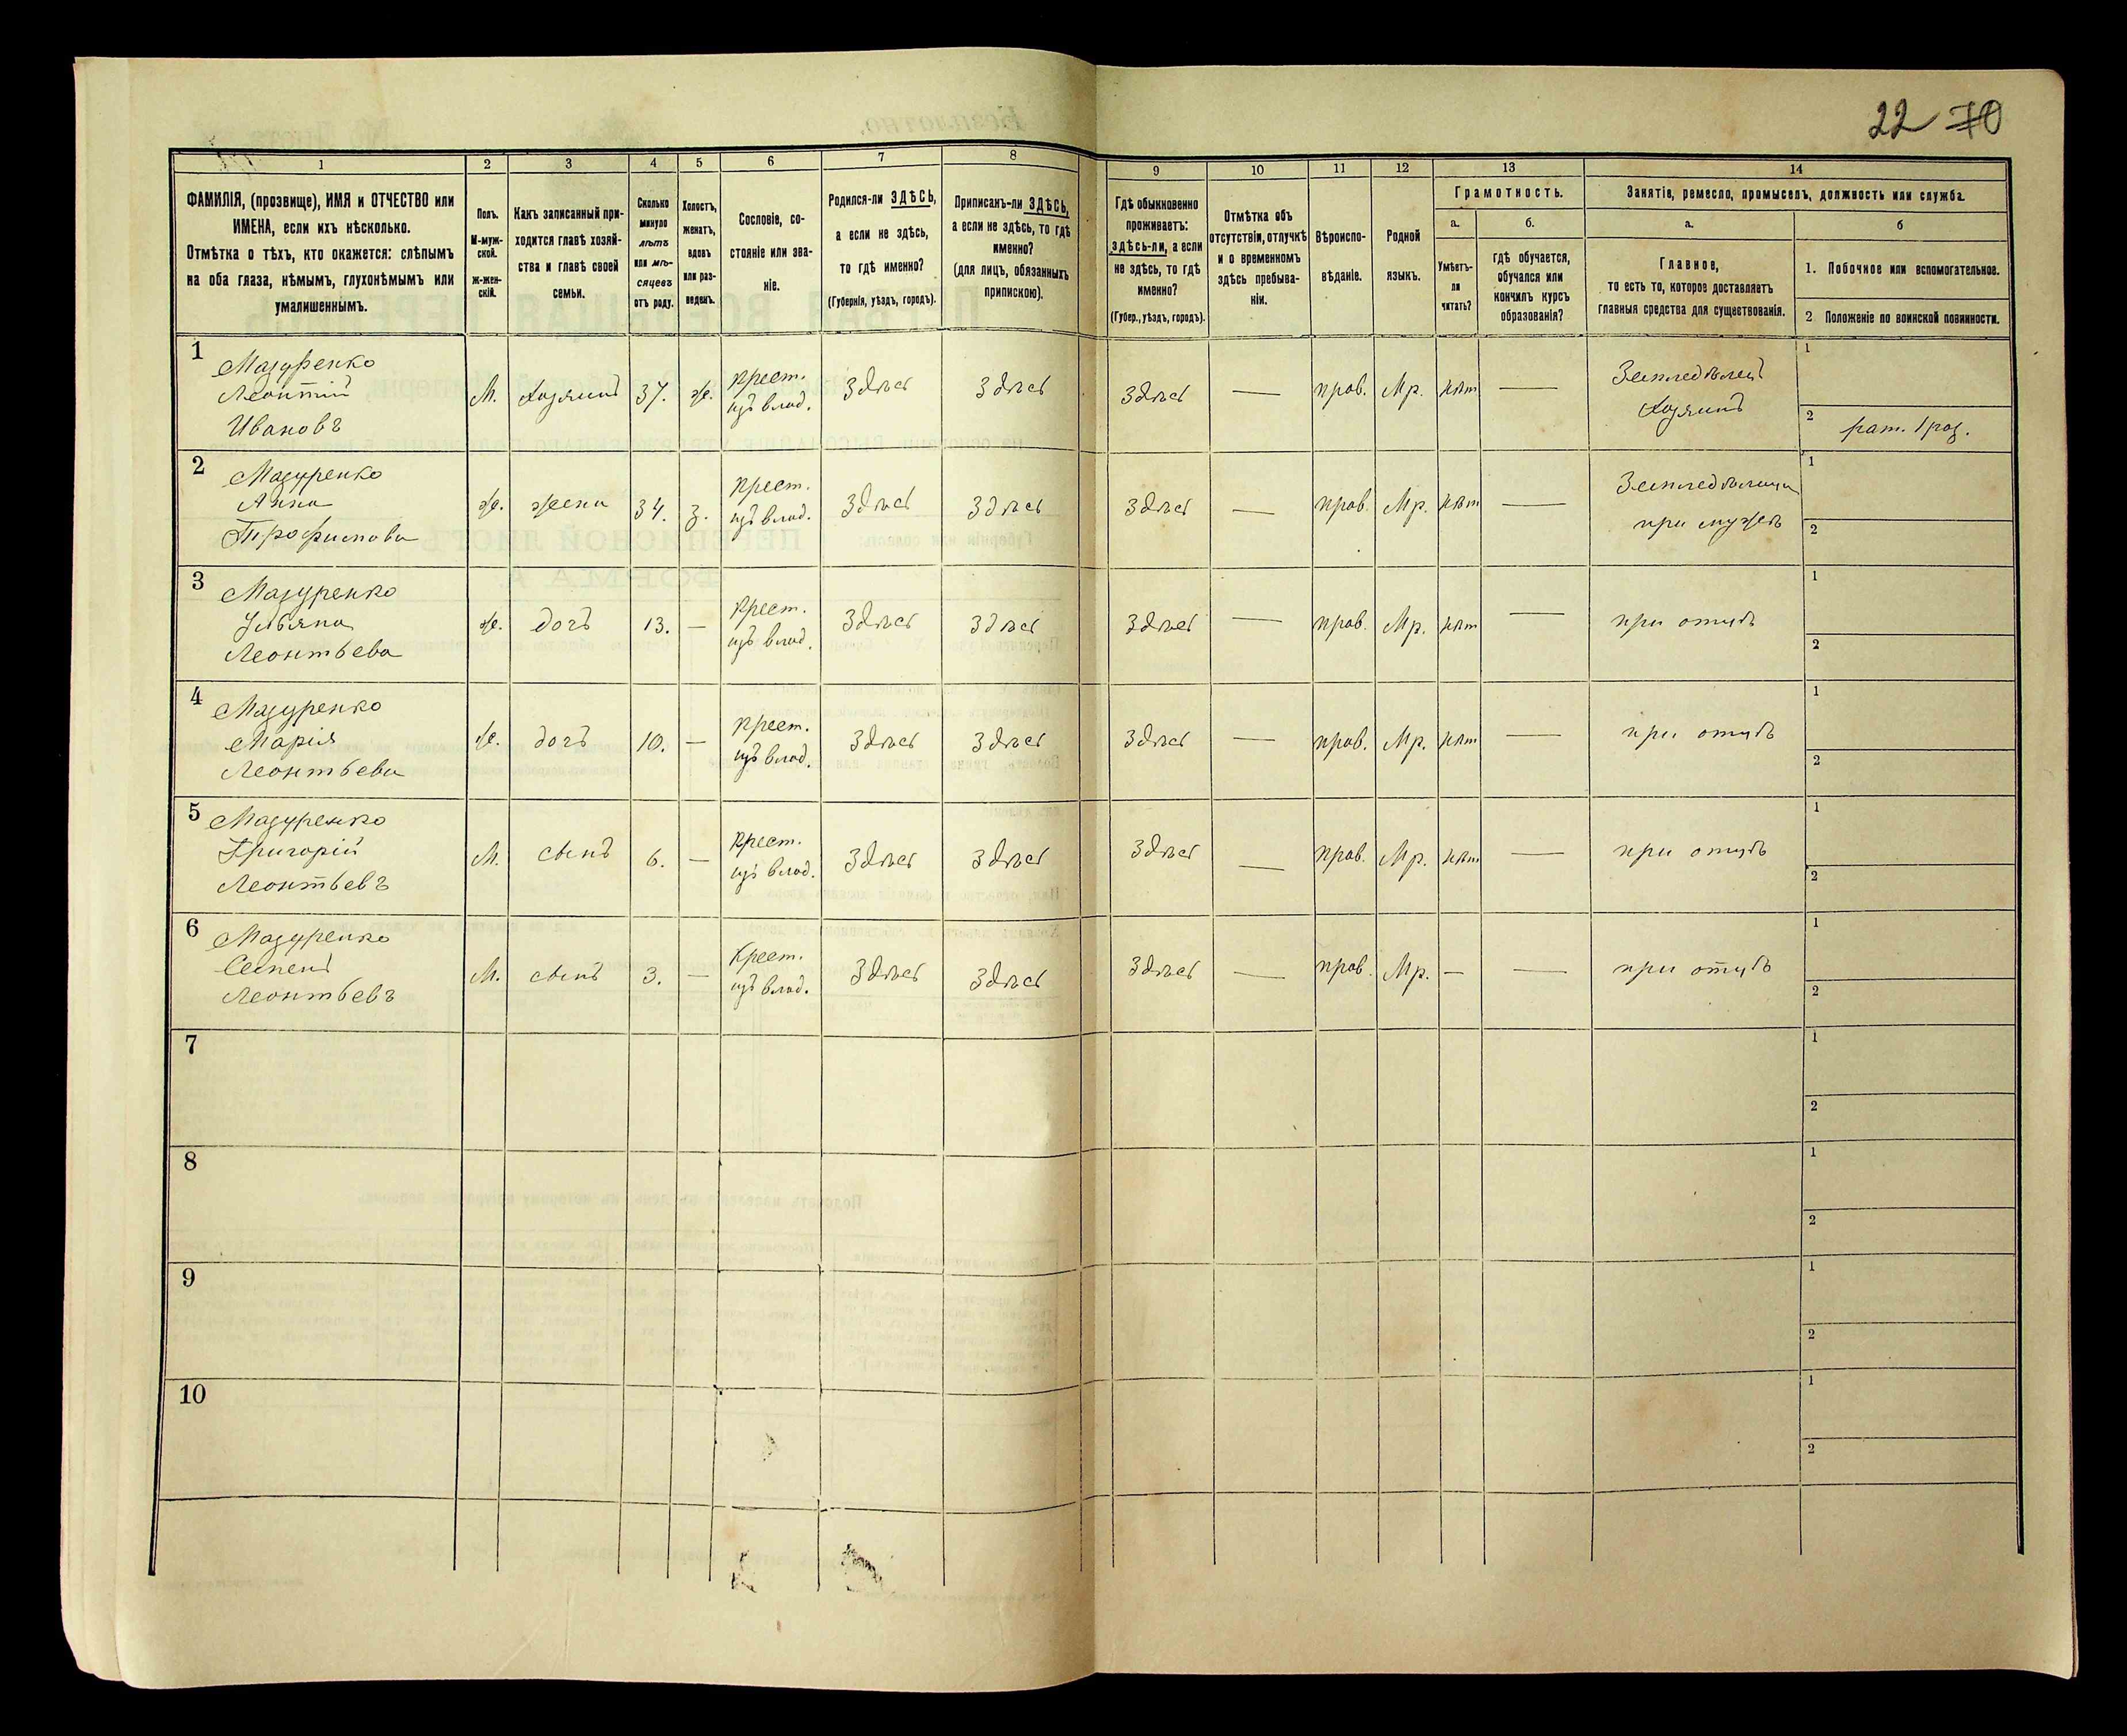 22 70
1 2 3 4 5 6 7 8 9 10 11 12 13 14
ФАМИЛІЯ, (прозвище), ИМЯ и ОТЧЕСТВО или
ИМЕНА, если ихъ нѣсколько.
Отмѣтка о тѣхъ, кто окажется: слѣпымъ
на оба глаза, нѣмымъ, глухонѣмымъ или
умалишеннымъ.
Полъ.
М-муж-
ской.
ж-жен-
скій.
Какъ записанный при-
ходится главѣ хозяй-
ства и главѣ своей
семьи.
Сколько
минуло
лѣтъ
или мѣ-
сяцевъ
отъ роду.
Холостъ,
женатъ,
вдовъ
или раз-
веденъ.
Сословіе, со-
стояніе или зва-
ніе.
Родился-ли ЗДѢСЬ,
а если не здѣсь,
то гдѣ именно?
(Губернія, уѣздъ, городъ).
Приписанъ-ли ЗДѢСЬ,
а если не здѣсь, то гдѣ
именно?
(для лицъ, обязанныхъ
припискою).
Гдѣ обыкновенно
проживаетъ:
здѣсь-ли, а если
не здѣсь, то гдѣ
именно?
(Губер., уѣздъ, городъ).
Отмѣтка объ
отсутствіи, отлучкѣ
и о временномъ
здѣсь пребыва-
ніи.
Вѣроиспо-
вѣданіе.
Родной
языкъ.
Грамотность.
а.
Умѣетъ-
ли
читать?
б.
гдѣ обучается,
обучался или
кончилъ курсъ
образованія?
Занятіе, ремесло, промыселъ, должность или служба.
а.
Главное,
то есть то, которое доставляетъ
главныя средства для существованія.
б
1. Побочное или вспомогательное.
2 Положеніе по воинской повинности.
1
Мазуренко
Леонтій
Ивановъ
М.
Хозяинъ
37.
ж.
крест.
изъ влад.
Здѣсь
Здѣсь
Здѣсь
—
прав.
Мр.
нѣт
—
Земледѣлецъ
Хозяинъ
1
2
рат. 1 раз.
2
Мазуренко
Анна
Трофимова
ж.
жена
34.
з.
крест.
изъ влад.
Здѣсь
Здѣсь
Здѣсь
—
прав.
Мр.
нѣт
—
при мужѣ
1
2
3
Мазуренко
Ульяна
Леонтьева
ж.
дочъ
13.
—
крест.
изъ влад.
Здѣсь
Здѣсь
Здѣсь
—
прав.
Мр.
нѣт
—
при отцѣ
1
2
4
Мазуренко
Марія
Леонтьева
ж.
дочъ
10.
—
крест.
изъ влад.
Здѣсь
Здѣсь
Здѣсь
—
прав.
Мр.
нѣт
—
при отцѣ
1
2
5
Мазуренко
Григорій
Леонтьевъ
М.
сынъ
6.
—
крест.
изъ влад.
Здѣсь
Здѣсь
Здѣсь
—
прав.
Мр.
нѣт
—
при отцѣ
1
2
6
Мазуренко
Семенъ
Леонтьевъ
М.
сынъ
3.
—
Крест.
изъ влад.
Здѣсь
Здѣсь
Здѣсь
—
прав.
Мр.
—
—
при отцѣ
1
2
7
1
2
8
1
2
9
1
2
10
1
2